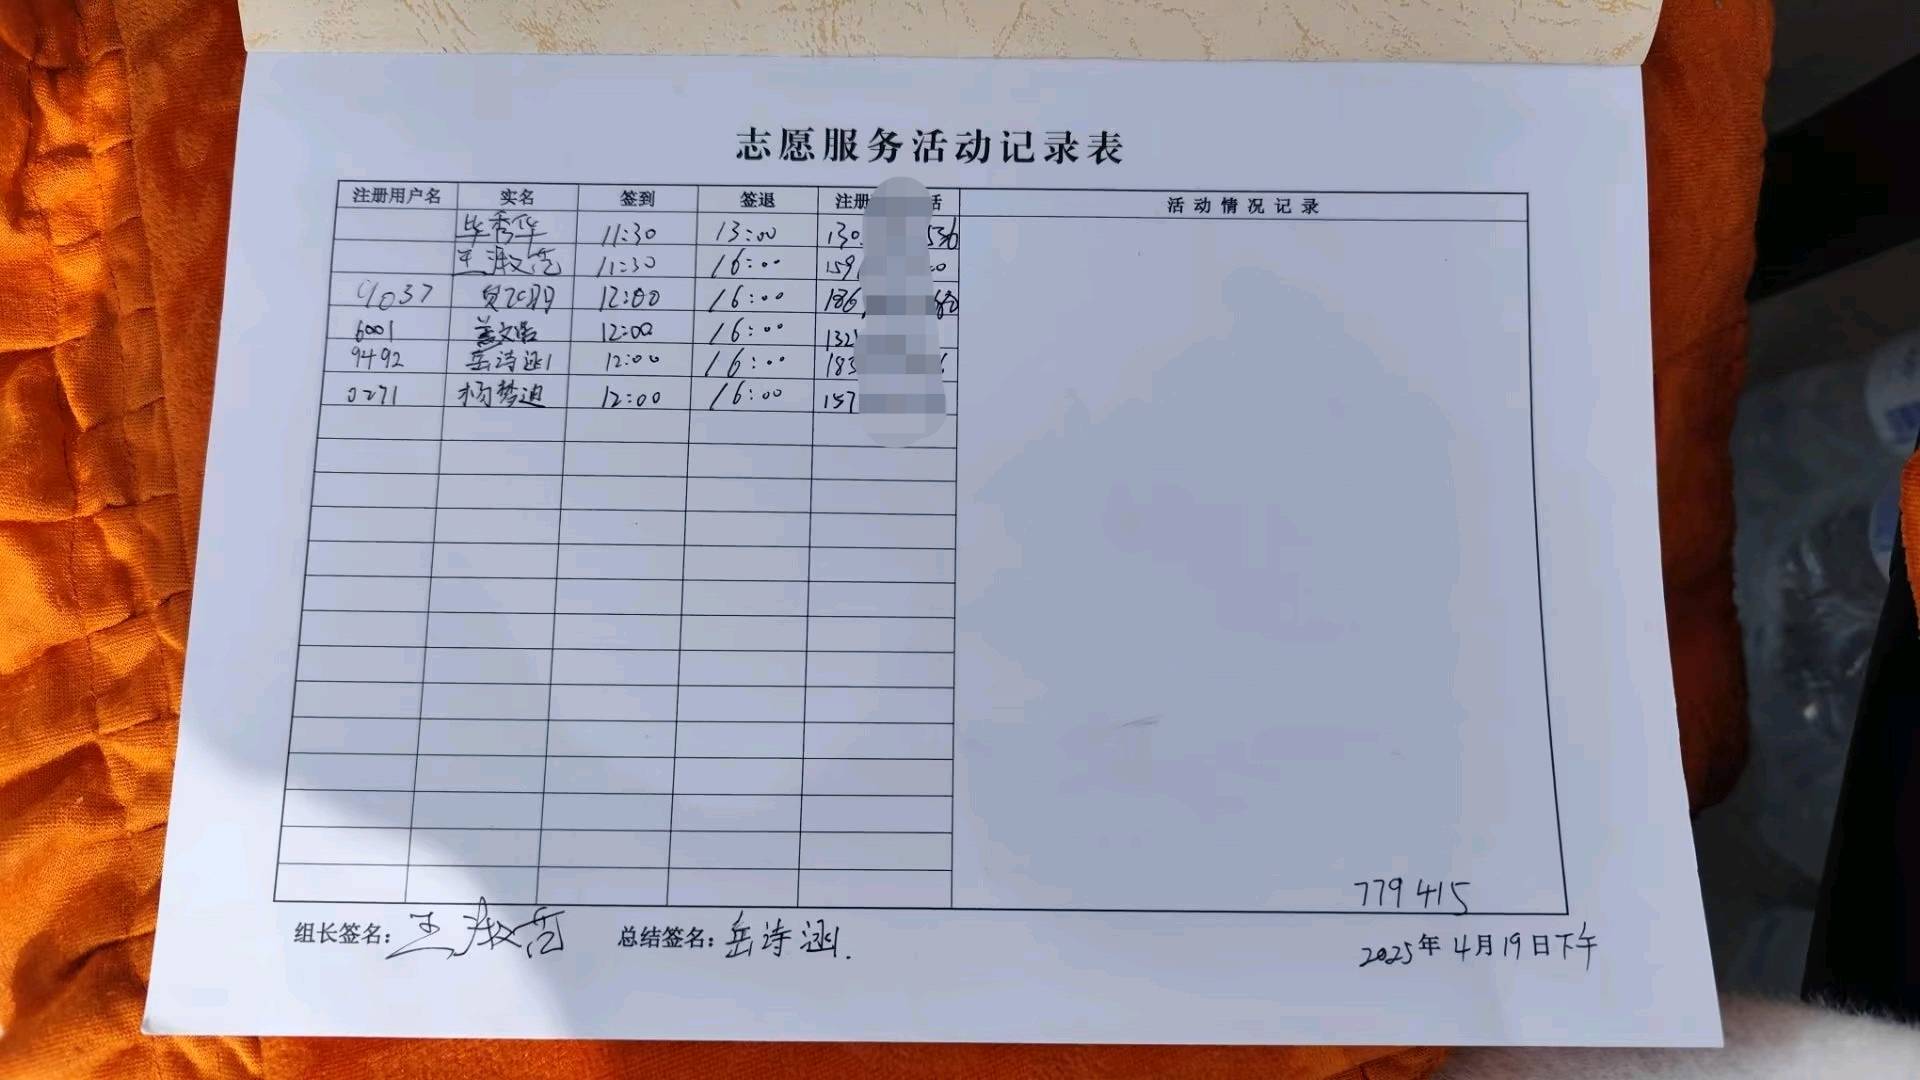 志愿服务活动记录表
注册用户名 实名 签到 签退 注册 话 活动情况记录
毕秀华 11:30 13:00 130 536
王淑 11:30 16:00 159
9037 12:00 16:00 186
6001 12:00 16:00 132
9492 岳诗涵 12:00 16:00 183
0271 杨梦迪 12:00 16:00 157
779415
组长签名: 王淑 总结签名: 岳诗涵.
2025年4月19日下午